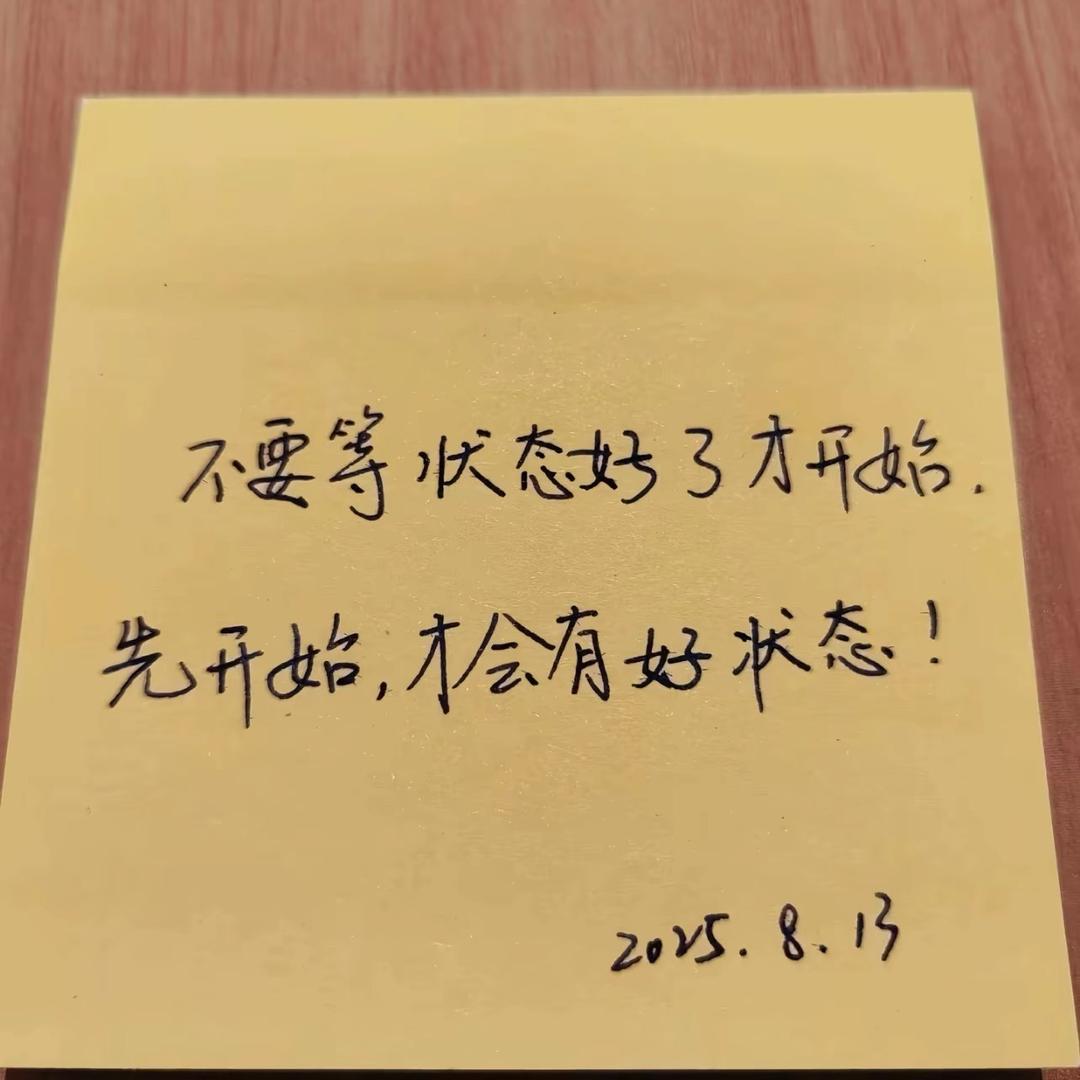 不要等状态好了才开始.
先开始,才会有好状态!
2025.8.13